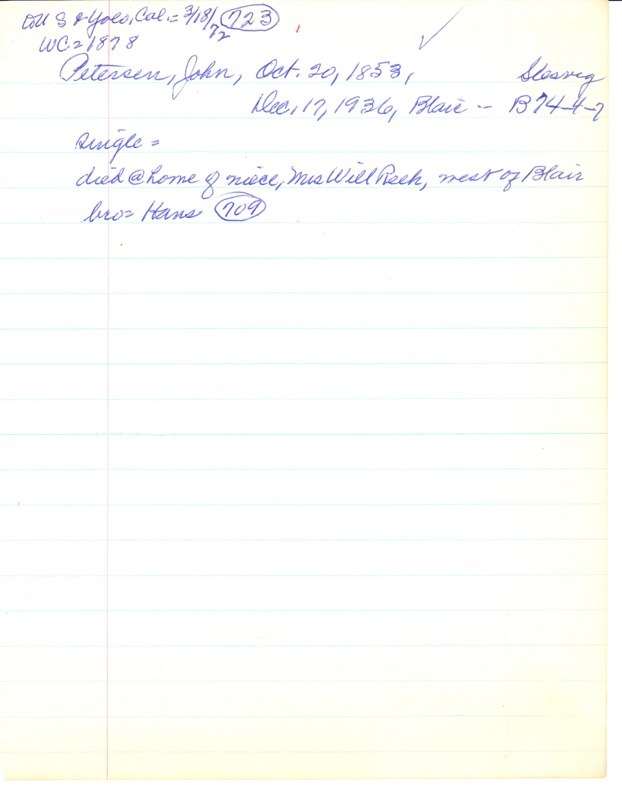 to U S & Yolo, Cal = 3/18/72 723
WC = 1878
Petersen, John, Oct. 20, 1853, Slesvig
Dec, 17, 1936, Blair -- B74-4-7
single =
died @ home of niece, Mrs Will Reeh, west of Blair
bro = Hans 709